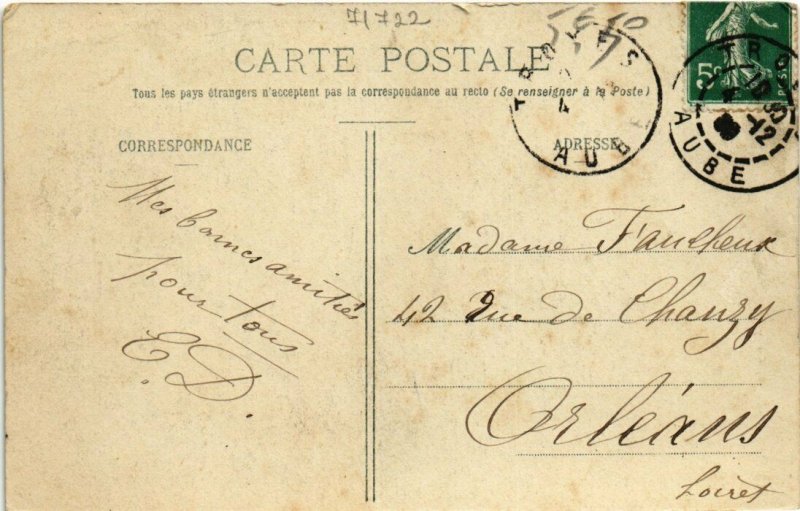 71722
CARTE POSTALE
Tous les pays étrangers n'acceptent pas la correspondance au recto (Se renseigner à la Poste)
CORRESPONDANCE
ADRESSE
TROYES
AUBE
TROY
10
12
AUBE
5c
Mes bonnes amitiés
pour tous
E.D.
Madame Faucheux
42 Rue de Chanzy
Orléans
Loiret